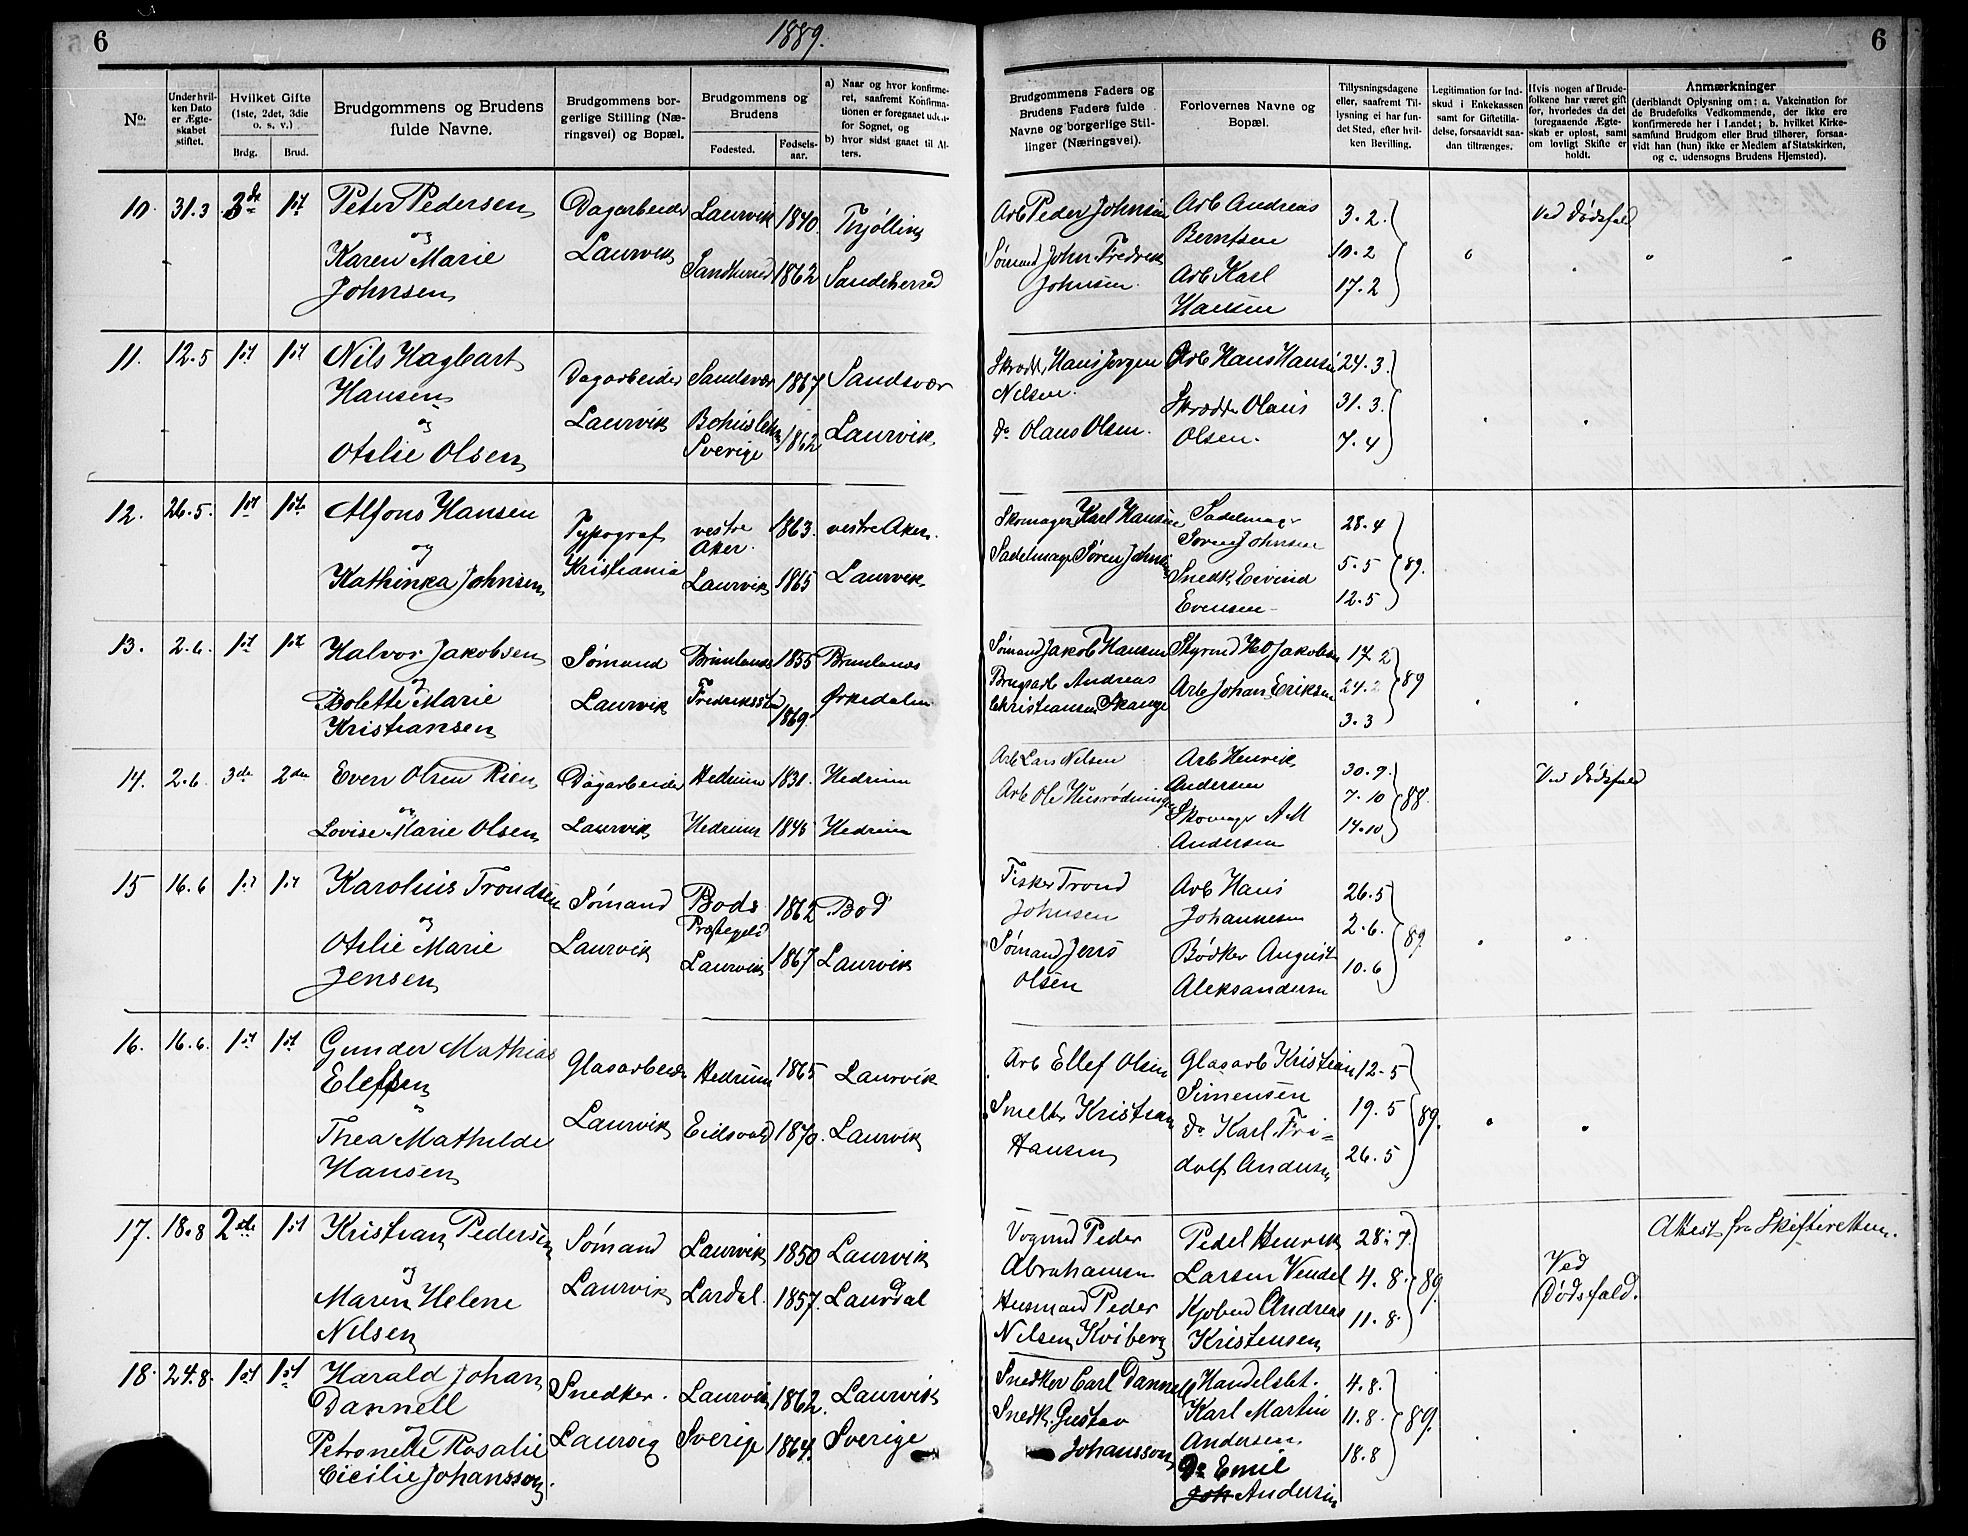 6
1889.
6
No.
Under hvilken Dato er Ægteskabet stiftet.
Hvilket Gifte (1ste, 2det, 3die o. s. v.)
Brdg.
Brud.
Brudgommens og Brudens fulde Navne.
Brudgommens borgerlige Stilling (Næringsvei) og Bopæl.
Brudgommens og Brudens
Fødested.
Fødselsaar.
a) Naar og hvor konfirmeret, saafremt Konfirmationen er foregaaet udenfor Sognet, og
b) hvor sidst gaaet til Alters.
Brudgommens Faders og Brudens Faders fulde Navne og borgerlige Stillinger (Næringsvei).
Forlovernes Navne og Bopæl.
Tillysningsdagene eller, saafremt Tillysning ei har fundet Sted, efter hvilken Bevilling.
Legitimation for Indskud i Enkekassen samt for Giftetilladelse, forsaavidt saadan tiltrænges.
Hvis nogen af Brudefolkene har været gift før, hvorledes da det foregaaende Ægteskab er opløst, samt om lovligt Skifte er holdt.
Anmærkninger
(deriblandt Oplysning om: a. Vakcination for de Brudefolks Vedkommende, der ikke ere konfirmerede her i Landet; b. hvilket Kirkesamfund Brudgom eller Brud tilhører, forsaavidt han (hun) ikke er Medlem af Statskirken, og c. udensogns Brudens Hjemsted).
10. 31.3 3de 1st Peter Pedersen Dagarbeider Laurvik 1840. Tjølling
og
Karen Marie Laurvik Sandherred 1862 Sandeherred
Johnsen
Arb Peder Johnsen Arb Andreas 3.2. Ved Dødsfald
Berntsen
Sømand John Fredrik 10.2
Johnsen. Arb Karl 17.2
Hansen
11. 12.5 1st 1st Nils Hagbart Dagarbeider Sandsvær 1867 Sandsvær
Hansen
og Laurvik Bohuslehn 1862 Laurvik
Otilie Olsen Sverige
Skrædd. Hans Jørgen Arb Hans Hansen 24.3.
Nilsen.
Skrædder Olaus 31.3.
Do Olaus Olsen. Olsen. 7.4
12. 26.5. 1st 1st Alfons Hansen Typograf vestre Aker. 1863. vestre Aker.
og
Kathinka Johnsen Kristiania Laurvik 1865 Laurvik
Skomager Karl Hansen Sadelmager 28.4
Søren Johnsen
Sadelmager Søren Johnsen 5.5 89.
Snedk Eivind
Evensen 12.5
13. 2.6. 1st 1st Halvor Jakobsen Sømand Brunlanes 1855 Brunlanes
og
Bolette Marie Laurvik Fredriksstad 1869. Ørkedalen
Kristiansen
Sømand Jakob Hansen Styrmd Jakobsen 17.2
Andreas Arb Johan Eriksen 24.2 89
Christiansen Skauge 3.3
14. 2.6 3de 2den Even Olsen Rien Dagarbeider Hedrum 1831. Hedrum
og
Lovise Marie Olsen Laurvik Hedrum 1845 Hedrum
Arb Lars Nilsen Arb Henrik 30.9. Ved Dødsfald
Andersen 7.10 88.
Arb Ole Skomager A M 14.10
Andersen
15 16.6 1st 1st Karolius Trondsen Sømand Bods Præstegeld 1862. Bod
og
Otilie Marie Laurvik Laurvik 1867 Laurvik
Jensen
Fisker Trond Arb Hans 26.5
Johnsen Johannesen 2.6. 89
Sømand Jens Bødker August 10.6
Olsen Aleksandersen
16. 16.6. 1st 1st Gunder Mathias Glasarbeider Hedrum 1865 Laurvik
Eleffsen
Thea Mathilde Laurvik Eidsvold 1870. Laurvik
Hansen
Arb Ellef Olsen Glasarb Kristian 12.5
Simensen
Smelter Kristian Do Karl Fri= 19.5 89.
Hansen dolf Andersen 26.5
17. 18.8 2den 1st Kristian Pedersen Sømand Laurvik 1850 Laurvik
og
Maren Helene Laurvik Lardal. 1857. Laurdal
Nilsen
Vognmd Peder Pedel Henrik 28.7. Attest fra Skifteretten.
Abrahamsen Larsen Vendel 4.8. 89. Ved
Husmand Peder Kjøbmd Andreas 11.8. Dødsfald.
Nilsen Kviberg Kristensen
18. 24.8. 1st 1st Harald Johan Snedker. Laurvik 1862. Laurvik
Dannell
og
Petronette Rosalie Laurvig Sverige 1864. Sverige
Cicilie Johansson.
Snedker Carl Dannell Handelsbt. 4.8.
Snedk. Gustav Karl Martin 11.8. 89.
Johansson Andersen 18.8
Do Emil
Joh Andersen